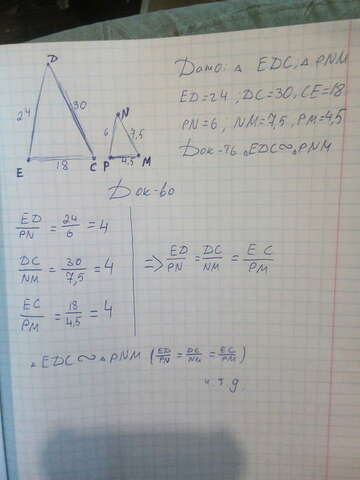 D
24
30
E
18
C
N
6
7,5
P
4,5
M
Дано: △ EDC, △ PNM
ED=24; DC=30, CE=18
PN=6; NM=7,5 PM=4,5
Док-ть △EDC∾△PNM
Док-во
ED/PN = 24/6 = 4
DC/NM = 30/7,5 = 4
EC/PM = 18/4,5 = 4
=> ED/PN = DC/NM = EC/PM
△ EDC ∾ △ PNM (ED/PN = DC/NM = EC/PM)
ч.т.д.